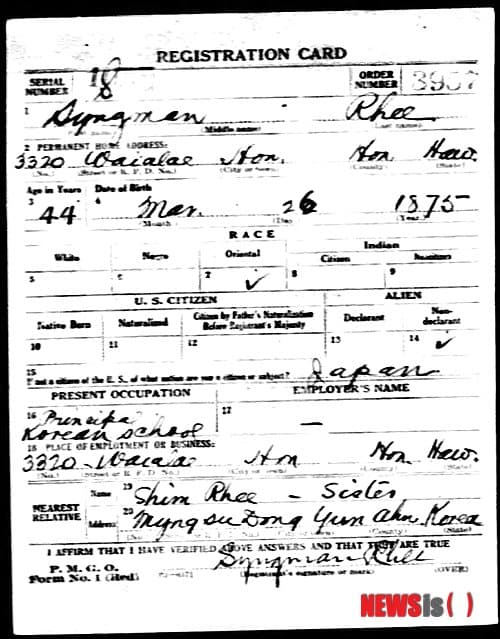 REGISTRATION CARD
SERIAL NUMBER 18 ORDER NUMBER 3957
1 Syngman Rhee
(Middle name)
2 PERMANENT HOME ADDRESS:
3320 Waialae Hon. Hon Haw.
(No.) (Street or R. F. D. No.) (City or town) (County) (State)
Age in Years Date of Birth
3 44 4 Mar. 26 1875
(Month) (Day) (Year)
RACE
White Negro Oriental Indian
Citizen Noncitizen
5 6 7 ✓ 8 9
U. S. CITIZEN ALIEN
Native Born Naturalized Citizen by Father's Naturalization Before Registrant's Majority Declarant Non-declarant
10 11 12 13 14 ✓
15 Japan
If not a citizen of the U. S., of what nation are you a citizen or subject?
PRESENT OCCUPATION EMPLOYER'S NAME
16 Principal 17 —
Korean School
18 PLACE OF EMPLOYMENT OR BUSINESS:
3320 - Waialae Hon Hon Haw.
(No.) (Street or R. F. D. No.) (City or town) (County) (State)
NEAREST RELATIVE Name 19 Shim Rhee - Sister
Address 20 Myng su Dong Yun Ahn Korea
(No.) (State)
I AFFIRM THAT I HAVE VERIFIED ABOVE ANSWERS AND THAT THEY ARE TRUE
P. M. G. O.
Form No. 1 (Red) Syngman Rhee
(Registrant's signature or mark) (OVER)
NEWSis( )